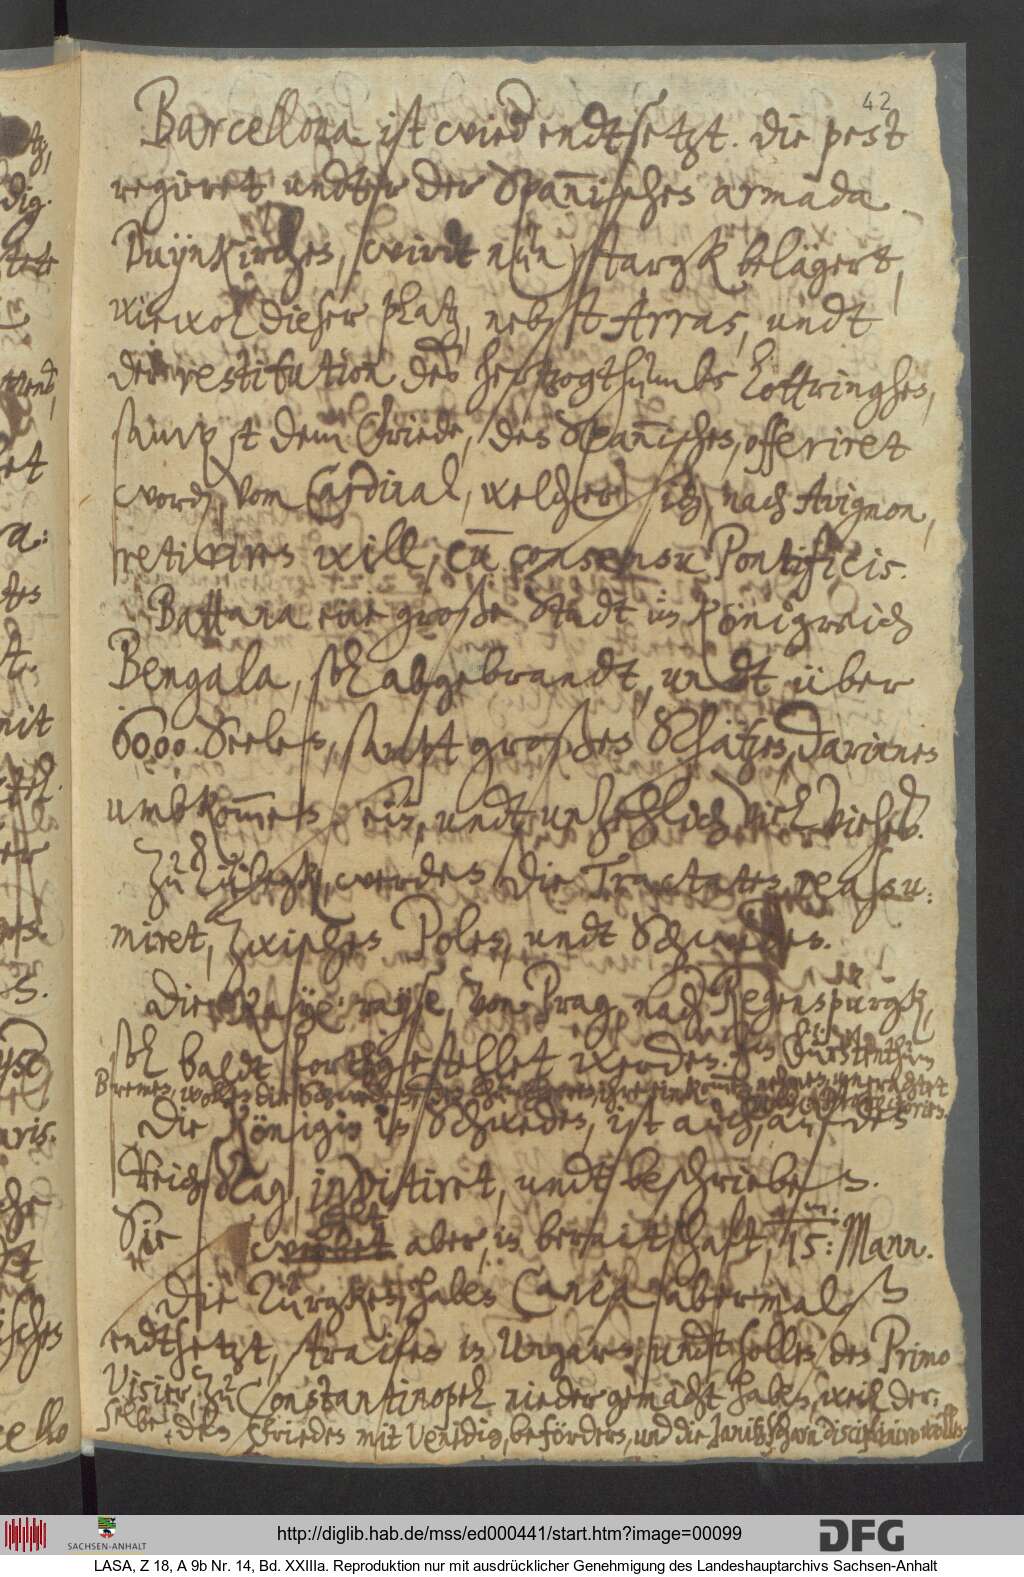 42
Barcellona ist wied endtsetzt. die pest
regieret undter der Spanischen armada.
Duynkirchen, wirdt nun starck belägert,
wiewol dieser platz, nebst Arras, undt
der restitution des hertzogthumbs Lottringhen,
sampt dem Friede, den Spanischen, offeriret
word, vom Cardinal, welcher sich, nach Avignon,
retiriren will, cū consensu Pontificis.
Battana eine große Stadt im Königreich
Bengala, sol abgebrandt, undt über
6000. Seelen, sampt großen Schätzen, darinnen
umbkommen sein, undt unzehlich viel viehes.
Zu Lübegk, werden die Tractaten reassu:
miret, zwischen Polen, undt Schweden.
Die Kayß: rayse, von Prag, nach Regenspurgk,
sol baldt fortgestellet werden. Im Fürstenthum
Bremen, wollen die Schweden,
Die Königin in Schweden, ist auch, auf den
Reichstag, inditiret, undt beschrieben.
Sie helt aber, in beraitschaft, 15: m. Mann.
Die Türgken, haben Canea abermalß
endtsetzt, straifen in Ungarn, undt sollen den Primo
Visier, zu Constantinopel niedergemacht haben, weil der:
selbe, den Frieden mit Venedig, befördern, und die Janitzscharn disciplinirn wollen.
http://diglib.hab.de/mss/ed000441/start.htm?image=00099
SACHSEN-ANHALT
DFG
LASA, Z 18, A 9b Nr. 14, Bd. XXIIIa. Reproduktion nur mit ausdrücklicher Genehmigung des Landeshauptarchivs Sachsen-Anhalt